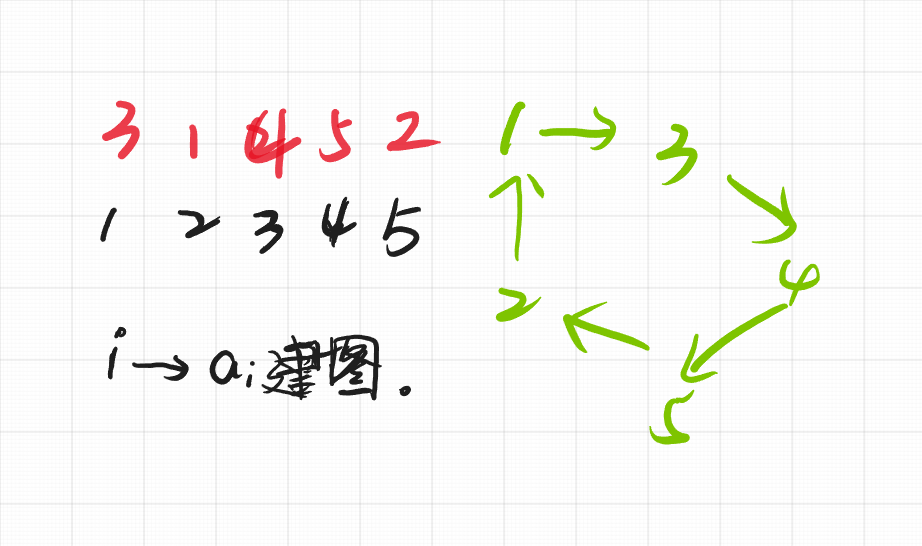 3 1 4 5 2
1 2 3 4 5
i → ai建图.
1 → 3
4
2
5